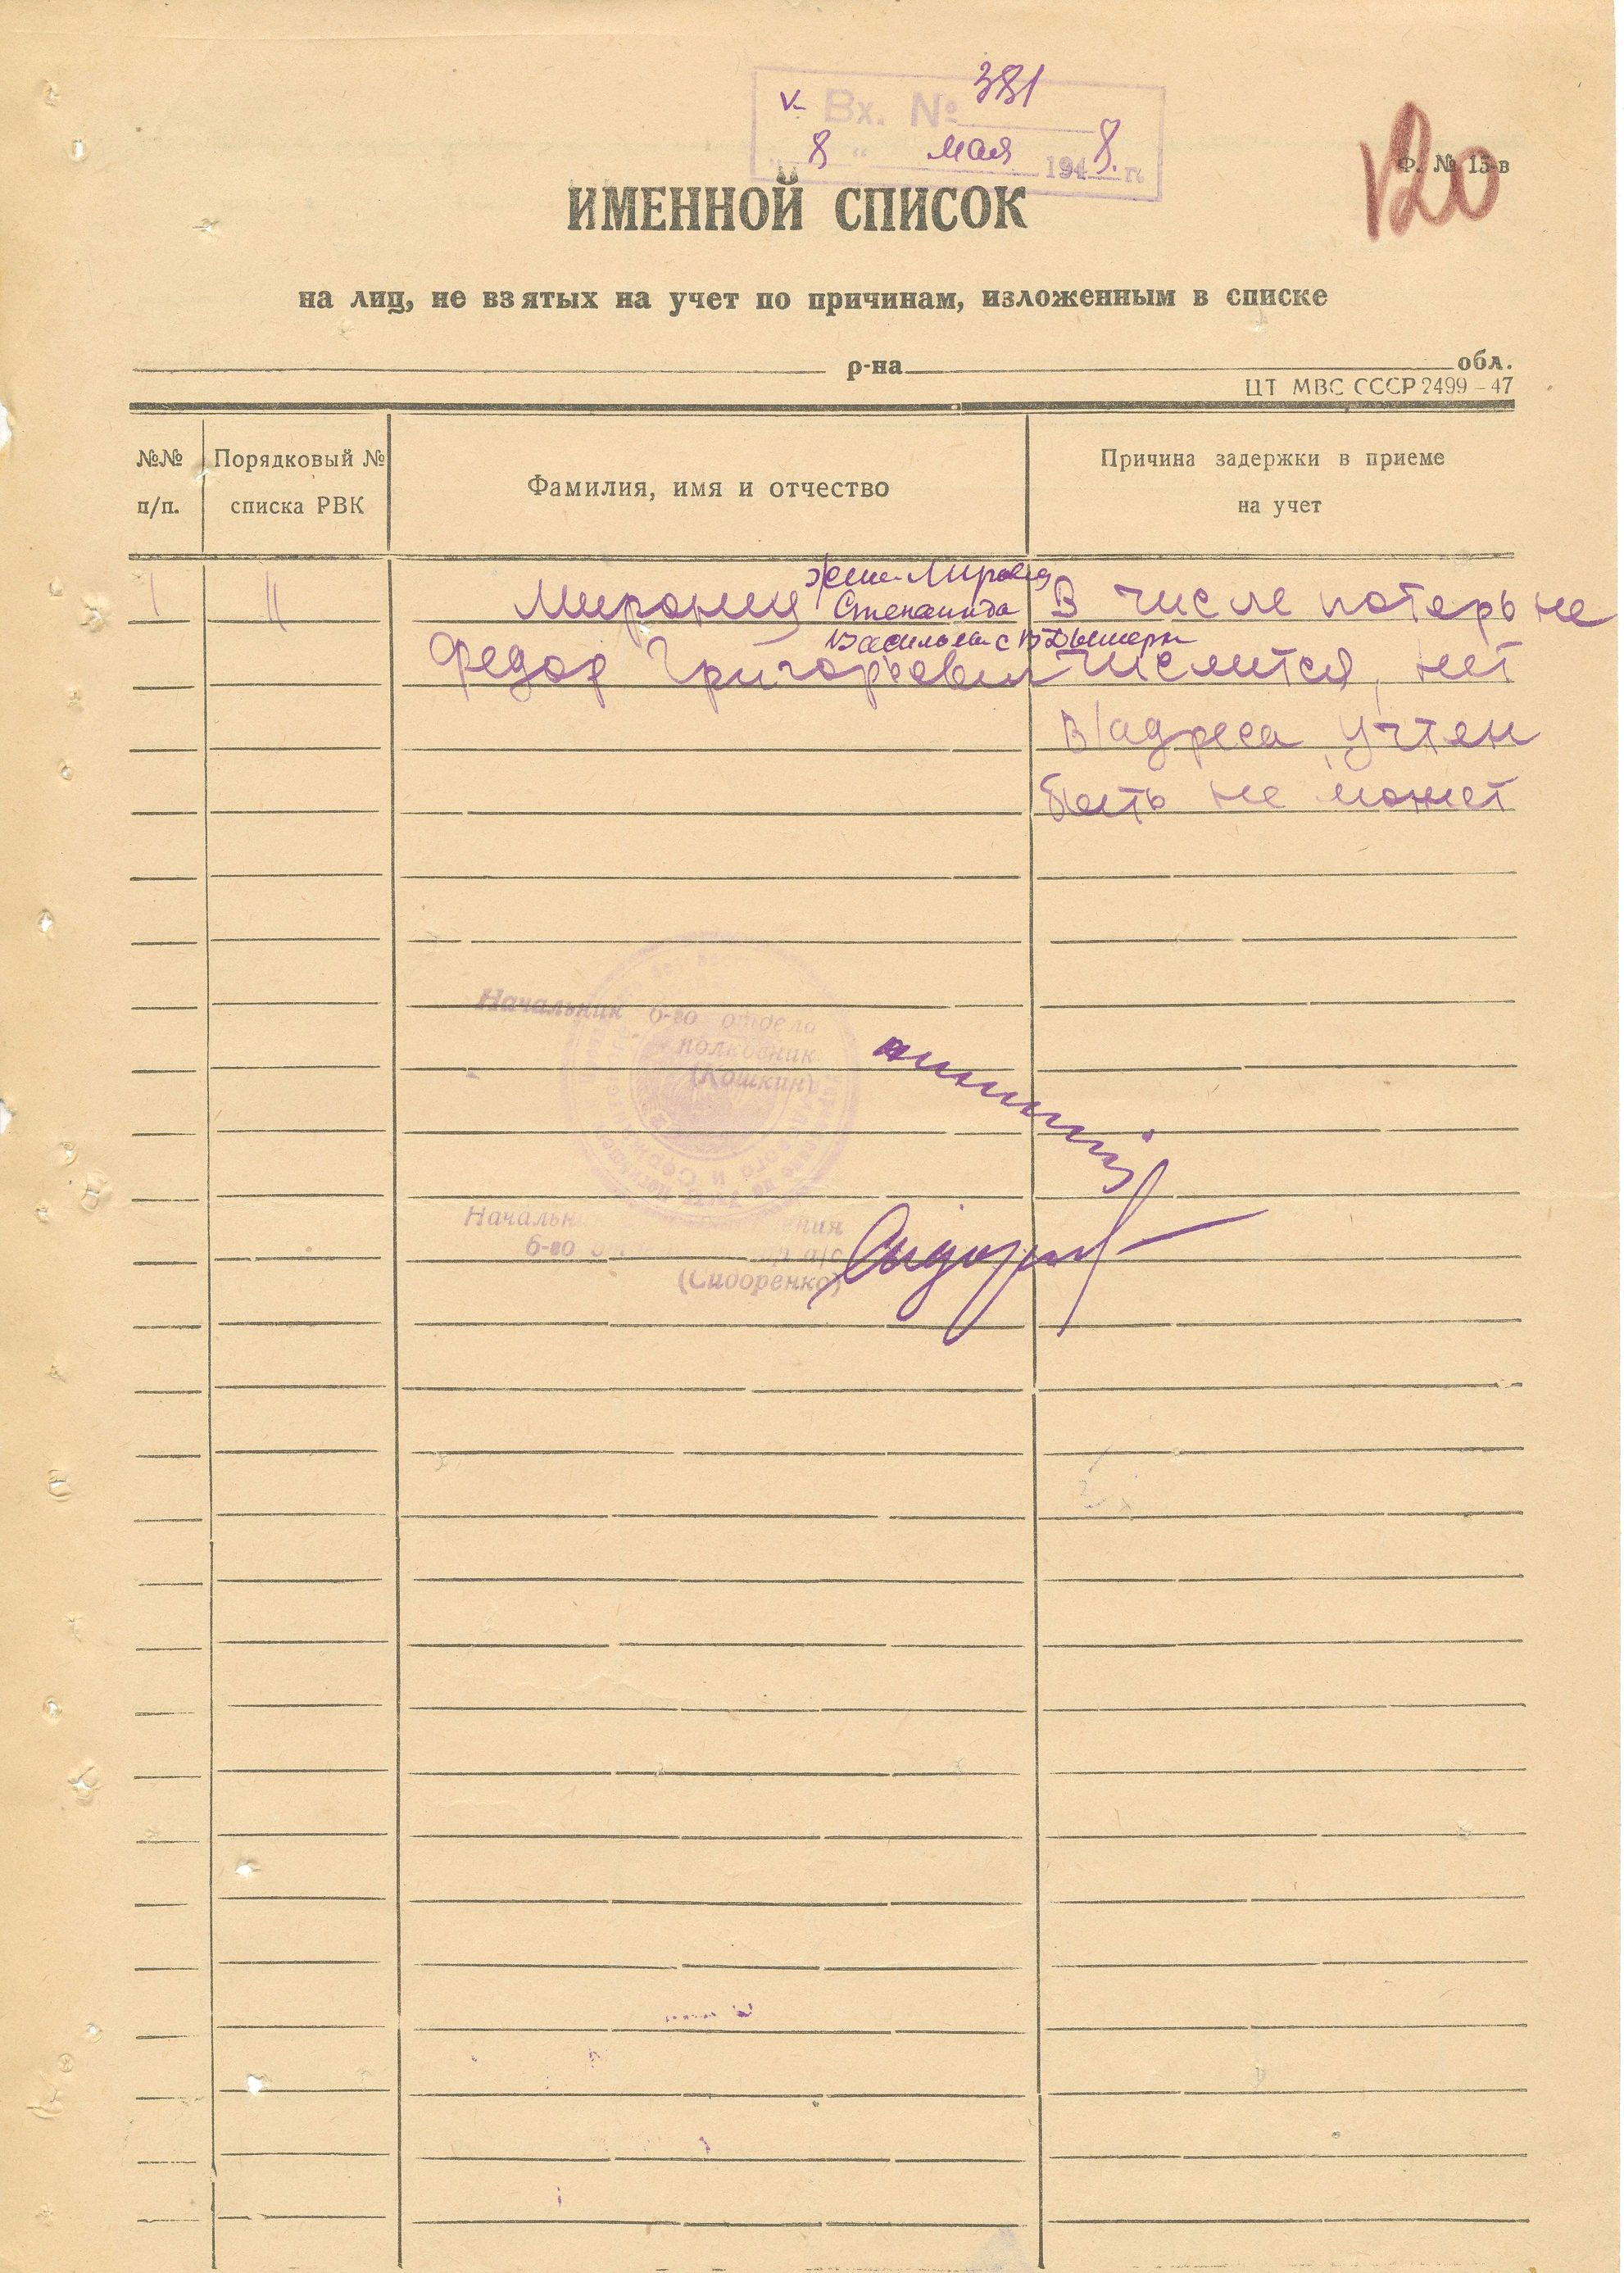 v Вх. № 381
„ 8 “ мая 1948. г.
Ф. № 13-в
120
ИМЕННОЙ СПИСОК
на лиц, не взятых на учет по причинам, изложенным в списке
р-на обл.
ЦТ МВС СССР 2499-47
№№ п/п.
Порядковый № списка РВК
Фамилия, имя и отчество
Причина задержки в приеме на учет
1 11
Степанида В числе потерь не
Федор Григорьевич числится, нет
в/адреса учтен
быть не может
Начальник 6-го отдела
полковник
(Кошкин)
Начальник
6-го а/с
(Сидоренко)